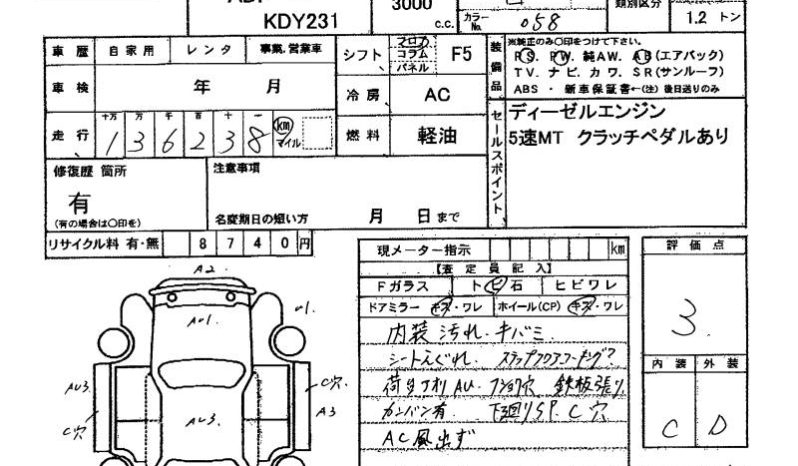 KDY231
3000
c.c.
カラー No. 058
類別区分
1.2 トン
車歴 自家用 レンタ 事業,営業車
シフト フロア コラム パネル F5
装備品
※純正のみ○印をつけて下さい。
PS. PW. 純AW. AB(エアバック)
TV. ナビ. カワ. SR(サンルーフ)
ABS ・ 新車保証書←(注) 後日送りのみ
車検 年 月
冷房 AC
走行 十万 万 千 百 十 一
136238 km マイル
燃料 軽油
セールスポイント
ディーゼルエンジン
5速MT クラッチペダルあり
修復歴 箇所
有
(有の場合は○印を)
注意事項
名変期日の短い方 月 日まで
リサイクル料 有・無 8740円
現メーター指示 km
【査定員記入】
Fガラス ト ビ 石 ヒビワレ
ドアミラー キズ・ワレ ホイール(CP) キズ・ワレ
内装 汚れ・キバミ
シートえぐれ.
鉄板張り
カンバン有 下廻りSP. C穴
AC風出ず
評価点
3.
内装 外装
C D
A2.
AU1.
U1.
AU3
C穴
AU3.
C穴
A3